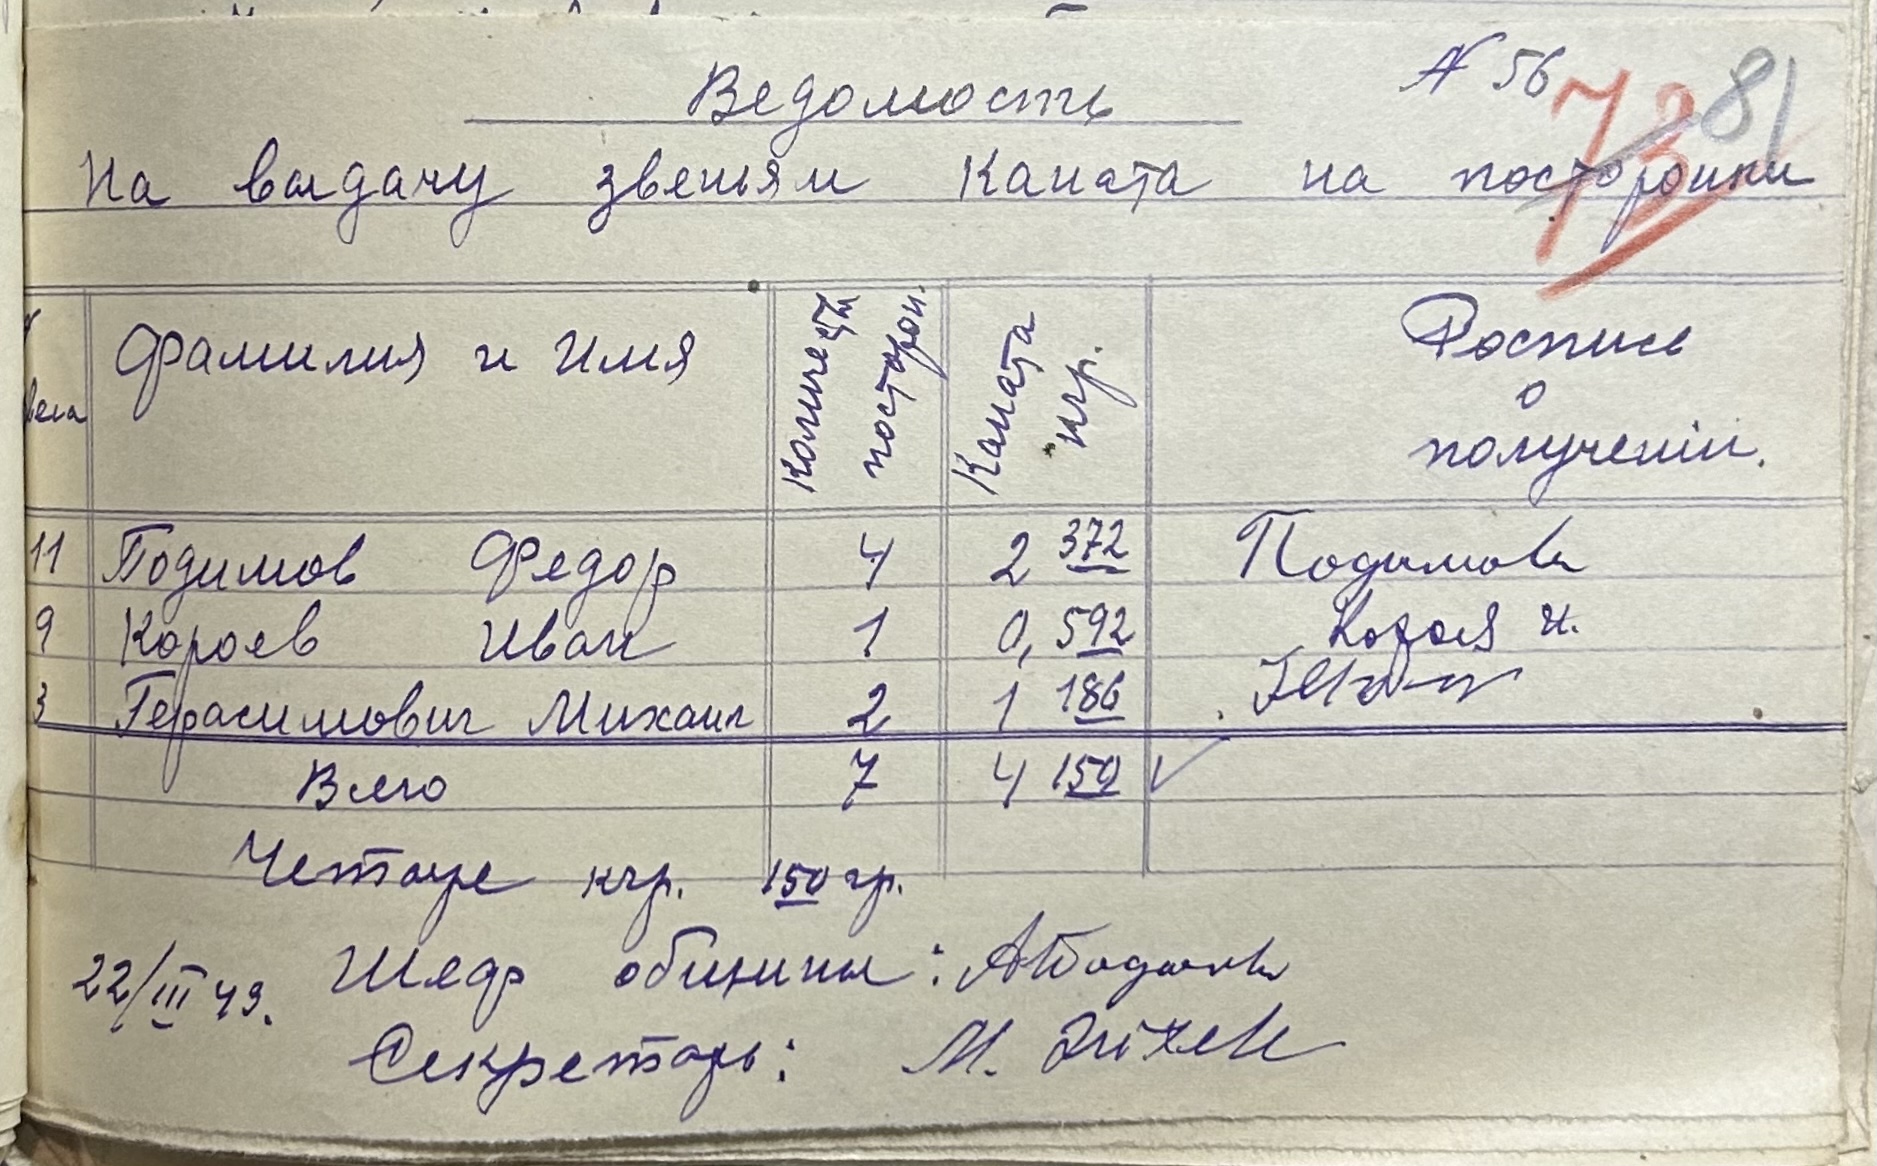 N 56
73 81
Ведомость
На выдачу звеньям Каната на посторонки
звена Фамилия и Имя Количеств посторон. Каната кгр. Роспись о получении.
11 Подимов Федор 4 2 372 Подимов
9 Короев Иван 1 0,592 Короев И.
3 Герасимович Михаил 2 1 186
Всего 7 4 150 ✓
Четыре кгр. 150 гр.
22/III 43. Шеф общины:
Секретарь: М.